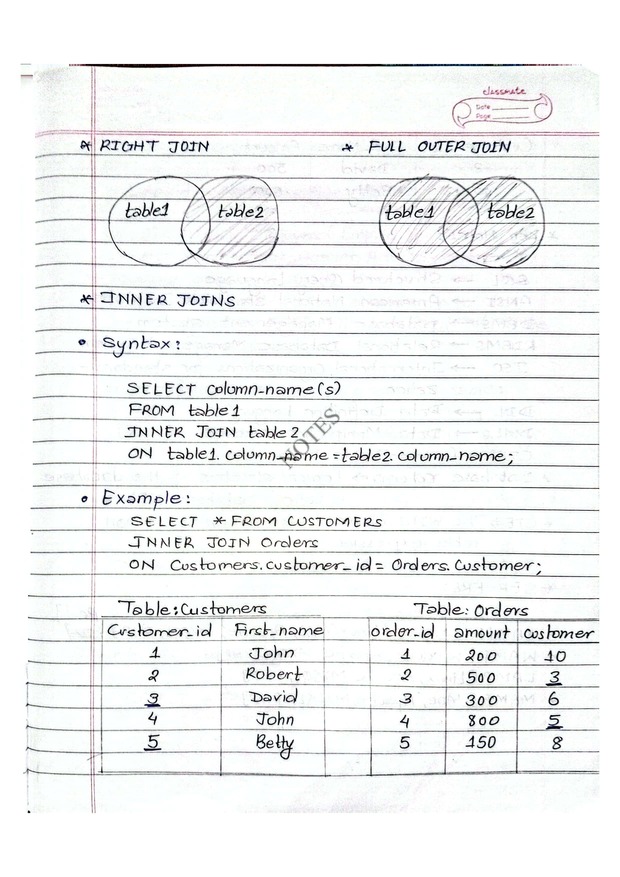 classmate
Date
Page
* RIGHT JOIN
* FULL OUTER JOIN
table1 table2
table1 table2
* INNER JOINS
• Syntax:
SELECT column_name(s)
FROM table1
INNER JOIN table2
ON table1.column_name=table2.column_name;
NOTES
• Example:
SELECT * FROM CUSTOMERS
INNER JOIN Orders
ON Customers.customer_id = Orders.Customer;
Table: Customers
Customer_id First_name
1 John
2 Robert
3 David
4 John
5 Betty
Table: Orders
order_id amount customer
1 200 10
2 500 3
3 300 6
4 800 5
5 150 8